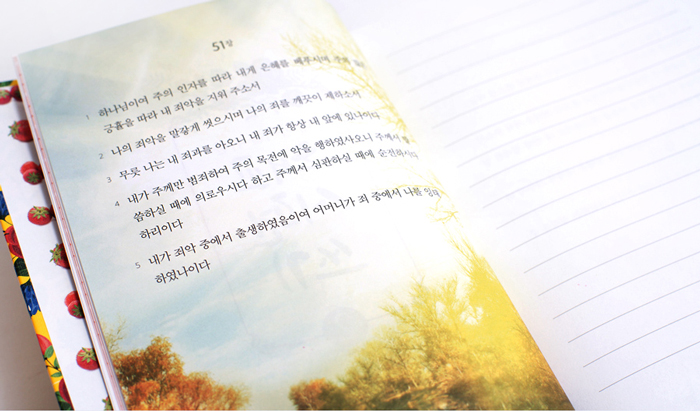 51
1 하나님이여 주의 인자를 따라 내게 은혜를 베푸시며 주의
긍휼을 따라 내 죄악을 지워 주소서
2 나의 죄악을 말갛게 씻으시며 나의 죄를 깨끗이 제하소서
3 무릇 나는 내 죄과를 아오니 내 죄가 항상 내 앞에 있나이다
4 내가 주께만 범죄하여 주의 목전에 악을 행하였사오니 주께서 말
씀하실 때에 의로우시다 하고 주께서 심판하실 때에 순전하시다
하리이다
5 내가 죄악 중에서 출생하였음이여 어머니가 죄 중에서 나를 잉태
하였나이다